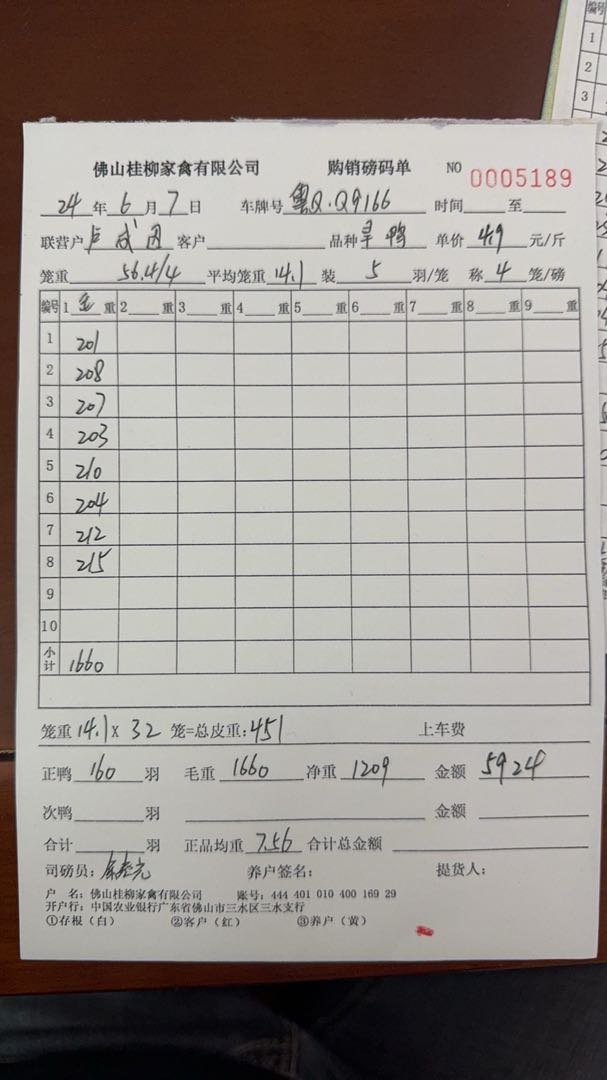 佛山桂柳家禽有限公司 购销磅码单 NO 0005189
24 年 6 月 7 日 车牌号 粤Q·Q9166 时间 至
联营户 卢成 客户 品种 旱鸭 单价 4.9 元/斤
笼重 56.4/4 平均笼重 14.1 装 5 羽/笼 称 4 笼/磅
编号 1 重 2 重 3 重 4 重 5 重 6 重 7 重 8 重 9 重
1 201
2 208
3 207
4 203
5 210
6 204
7 212
8 215
9
10
小计 1660
笼重 14.1 × 32 笼=总皮重: 451 上车费
正鸭 160 羽 毛重 1660 净重 1209 金额 5924
次鸭 羽 金额
合计 羽 正品均重 7.56 合计总金额
司磅员: 养户签名: 提货人:
户 名: 佛山桂柳家禽有限公司 账号: 444 401 010 400 169 29
开户行: 中国农业银行广东省佛山市三水区三水支行
①存根（白） ②客户（红） ③养户（黄）
编号
1
2
3